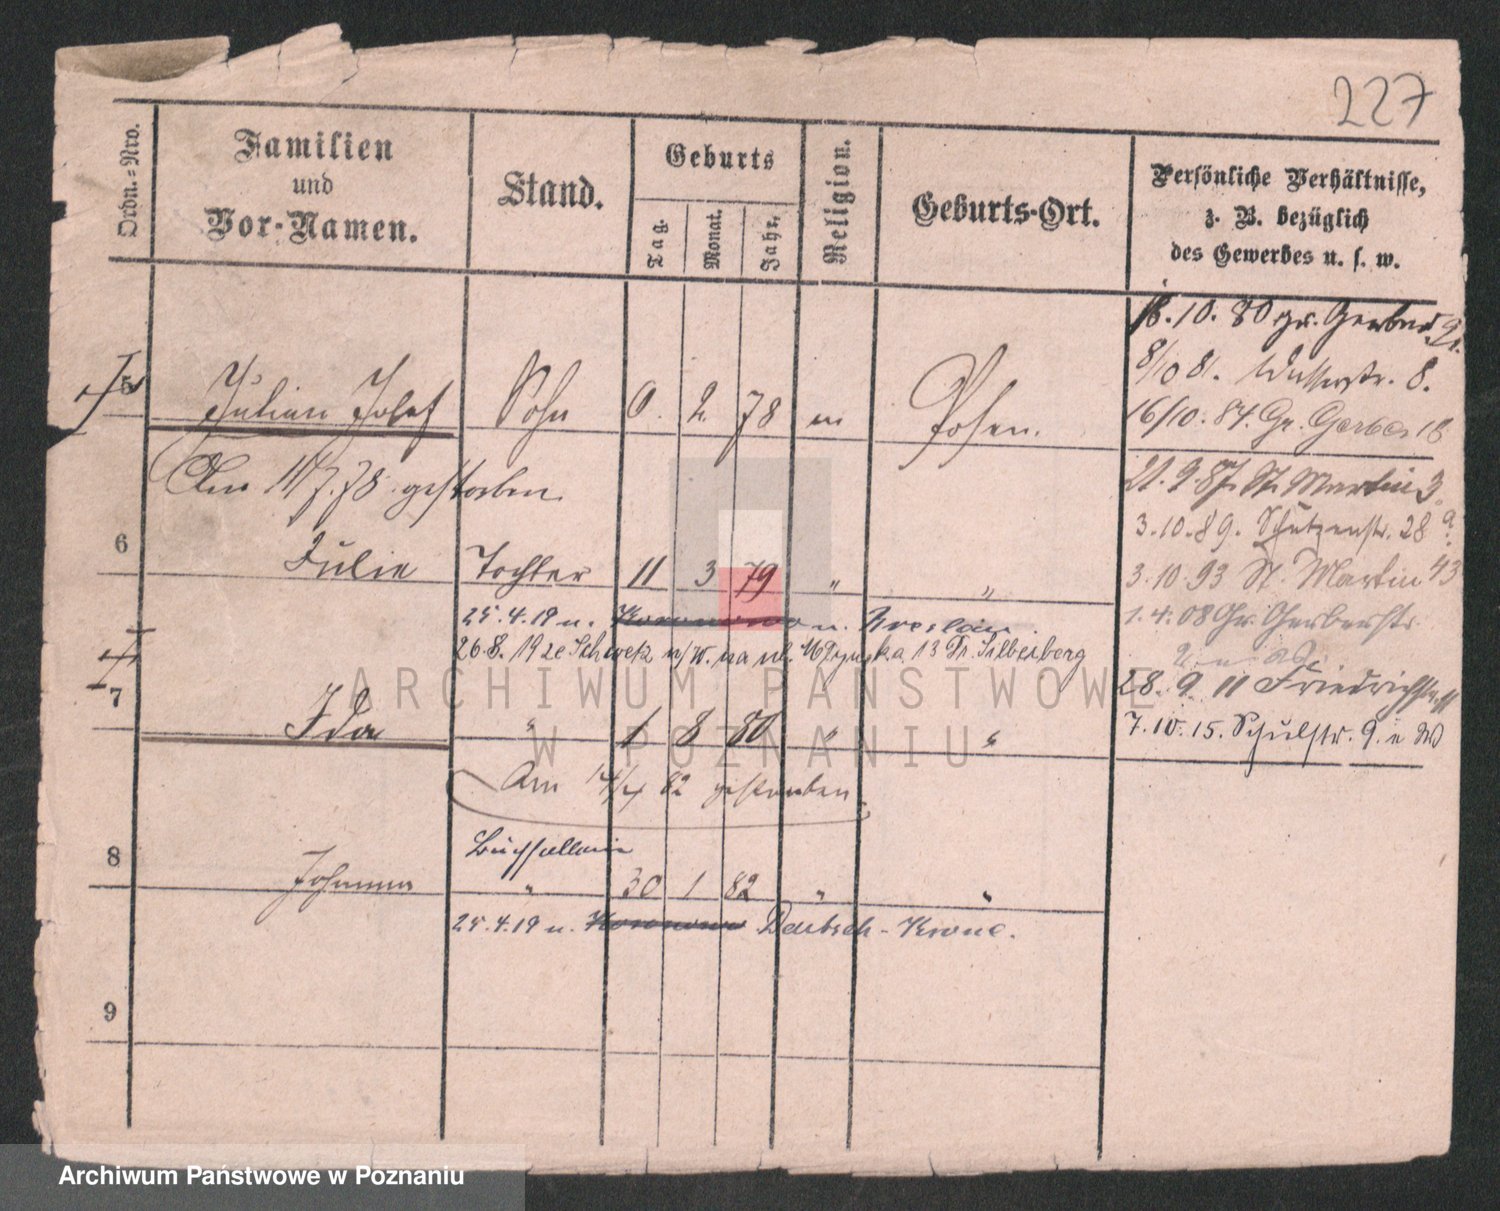 227
Ordn.-Nro.
Familien
und
Vor-Namen.
Stand.
Geburts
Tag.
Monat.
Jahr.
Religion.
Geburts-Ort.
Persönliche Verhältnisse,
z. B. bezüglich
des Gewerbes u. s. w.
5
Julian Josef Sohn 2 78 Posen.
Am 11/7.78 gestorben.
6
Julie Tochter 11 3 79 " "
25.4.19 n. Koronowo n. Breslau
26.8.19 ze Schwetz n/W. na ul. 13 Fr. Silberberg
7
Ida " 1 8 80 " "
Am 14/4 82 gestorben
8
Johanna " 30 1 82 " "
25.4.19 n. Koronowo Deutsch-Krone.
9
18.10.80 gr. Gerber
8/10 81. Wasserstr. 8.
16/10.84. Gr. Gerber 18
21.9.87. St. Martin 3.
3.10.89. Schützenstr. 28 a.
3.10.93 St. Martin 43
1.4.08 Gr. Gerberstr.
28.9.11 Friedrichstr.
7.10.15. Schulstr. 9.
ARCHIWUM PAŃSTWOWE
W POZNANIU
Archiwum Państwowe w Poznaniu